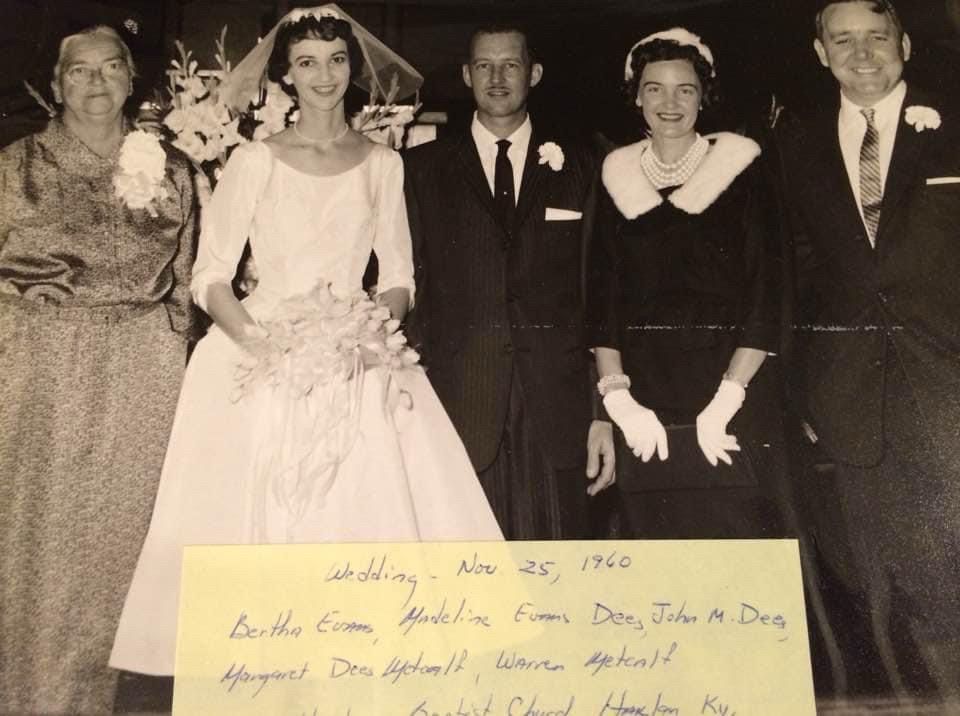 Wedding - Nov 25, 1960
Bertha Evans, Madeline Evans Dees, John M. Dees,
Margaret Dees Metcalf, Warren Metcalf
Baptist Church Harlan Ky.